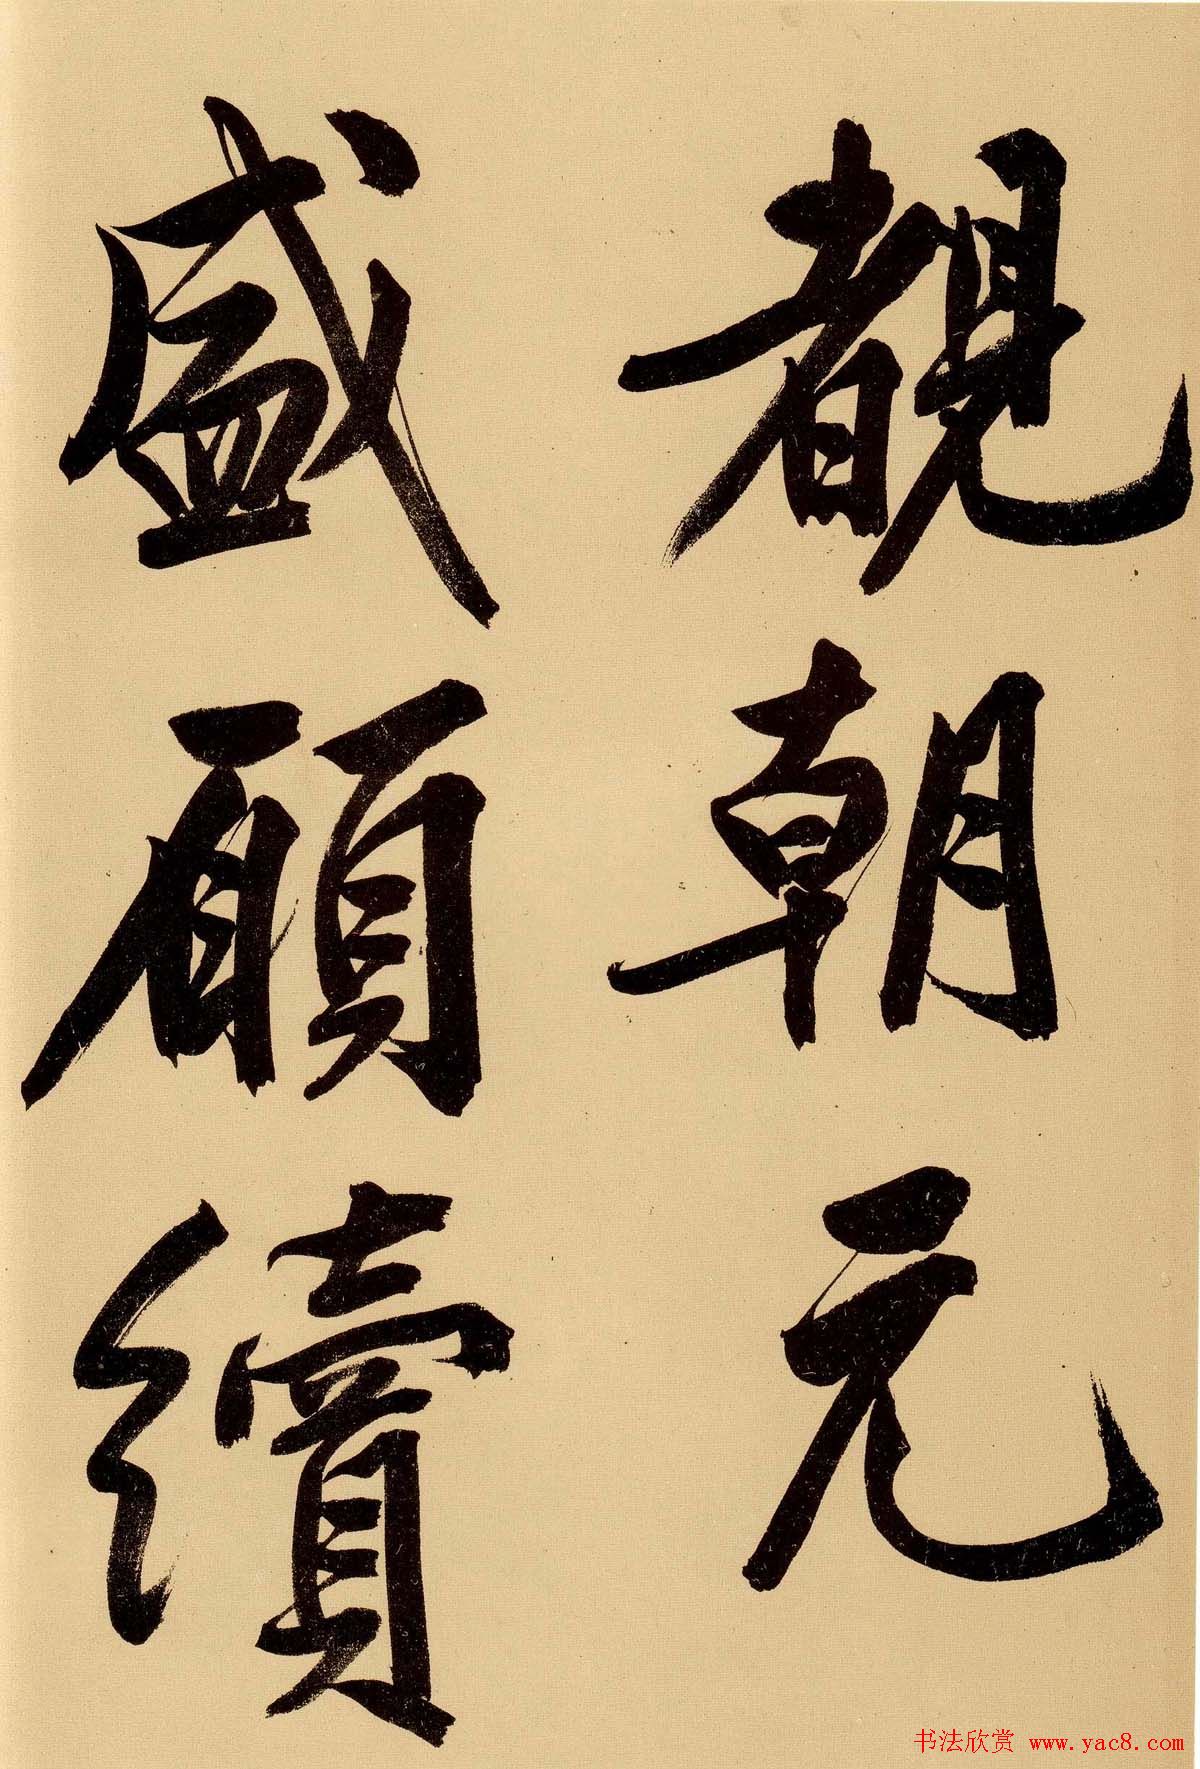 覩朝元
盛願續
书法欣赏 www.yac8.com